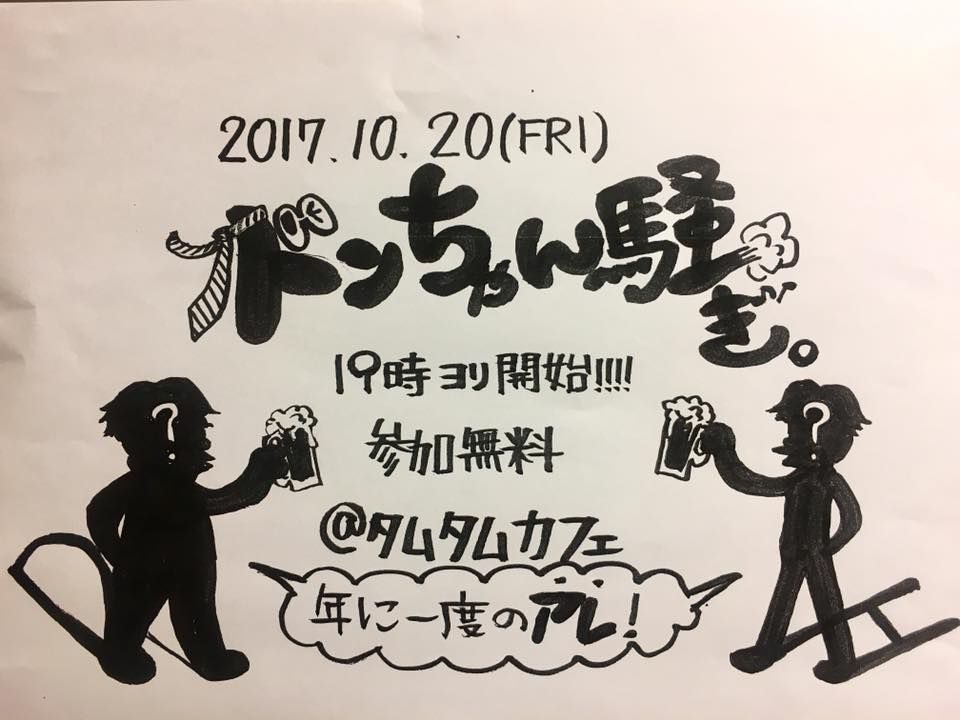 2017.10.20(FRI)
ドンちゃん騒
ぎ。
19時ヨリ開始!!!!
参加無料
@タムタムカフェ
年に一度のアレ!